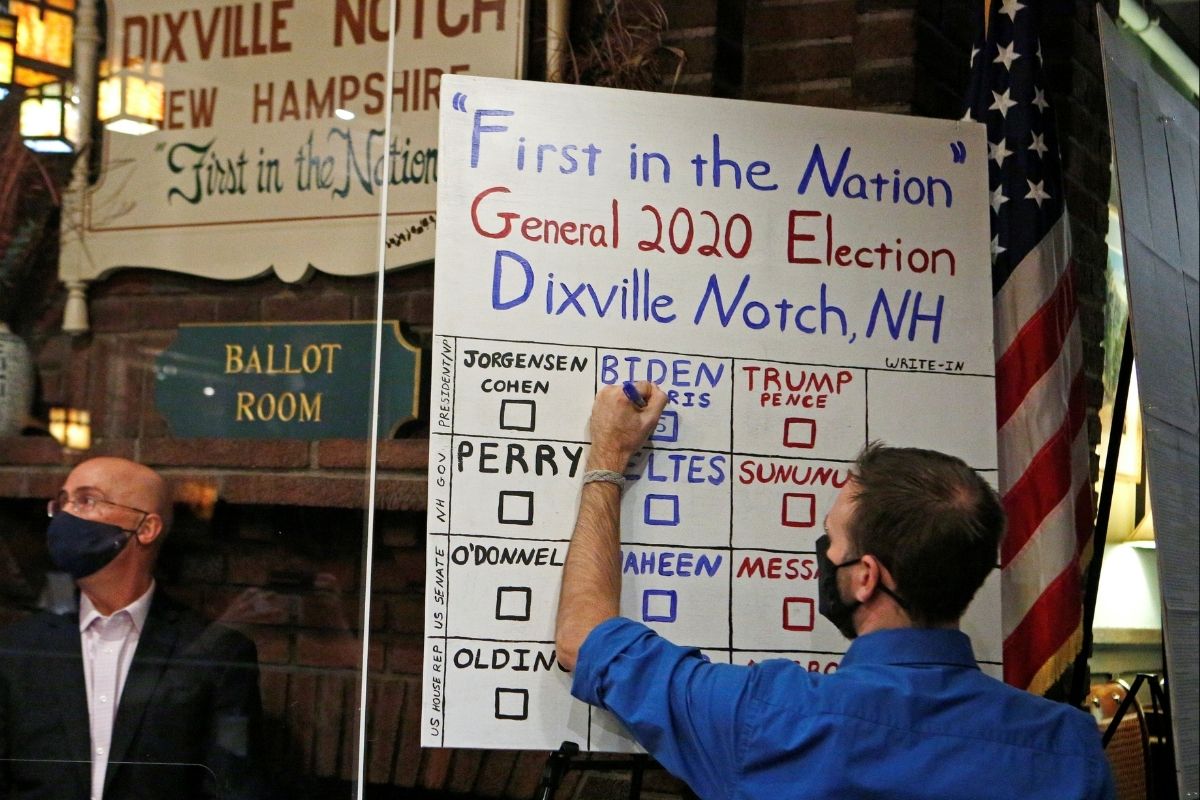 DIXVILLE NOTCH
NEW HAMPSHIR
"First in the Nation
BALLOT
ROOM
"First in the Nation"
General 2020 Election
Dixville Notch, NH
WRITE-IN
PRESIDENT/VP
JORGENSEN
COHEN
BIDEN
RIS
5
TRUMP
PENCE
NH GOV.
PERRY
ELTES
SUNUNU
US SENATE
O'DONNEL
AHEEN
MESS
US HOUSE REP
OLDIN